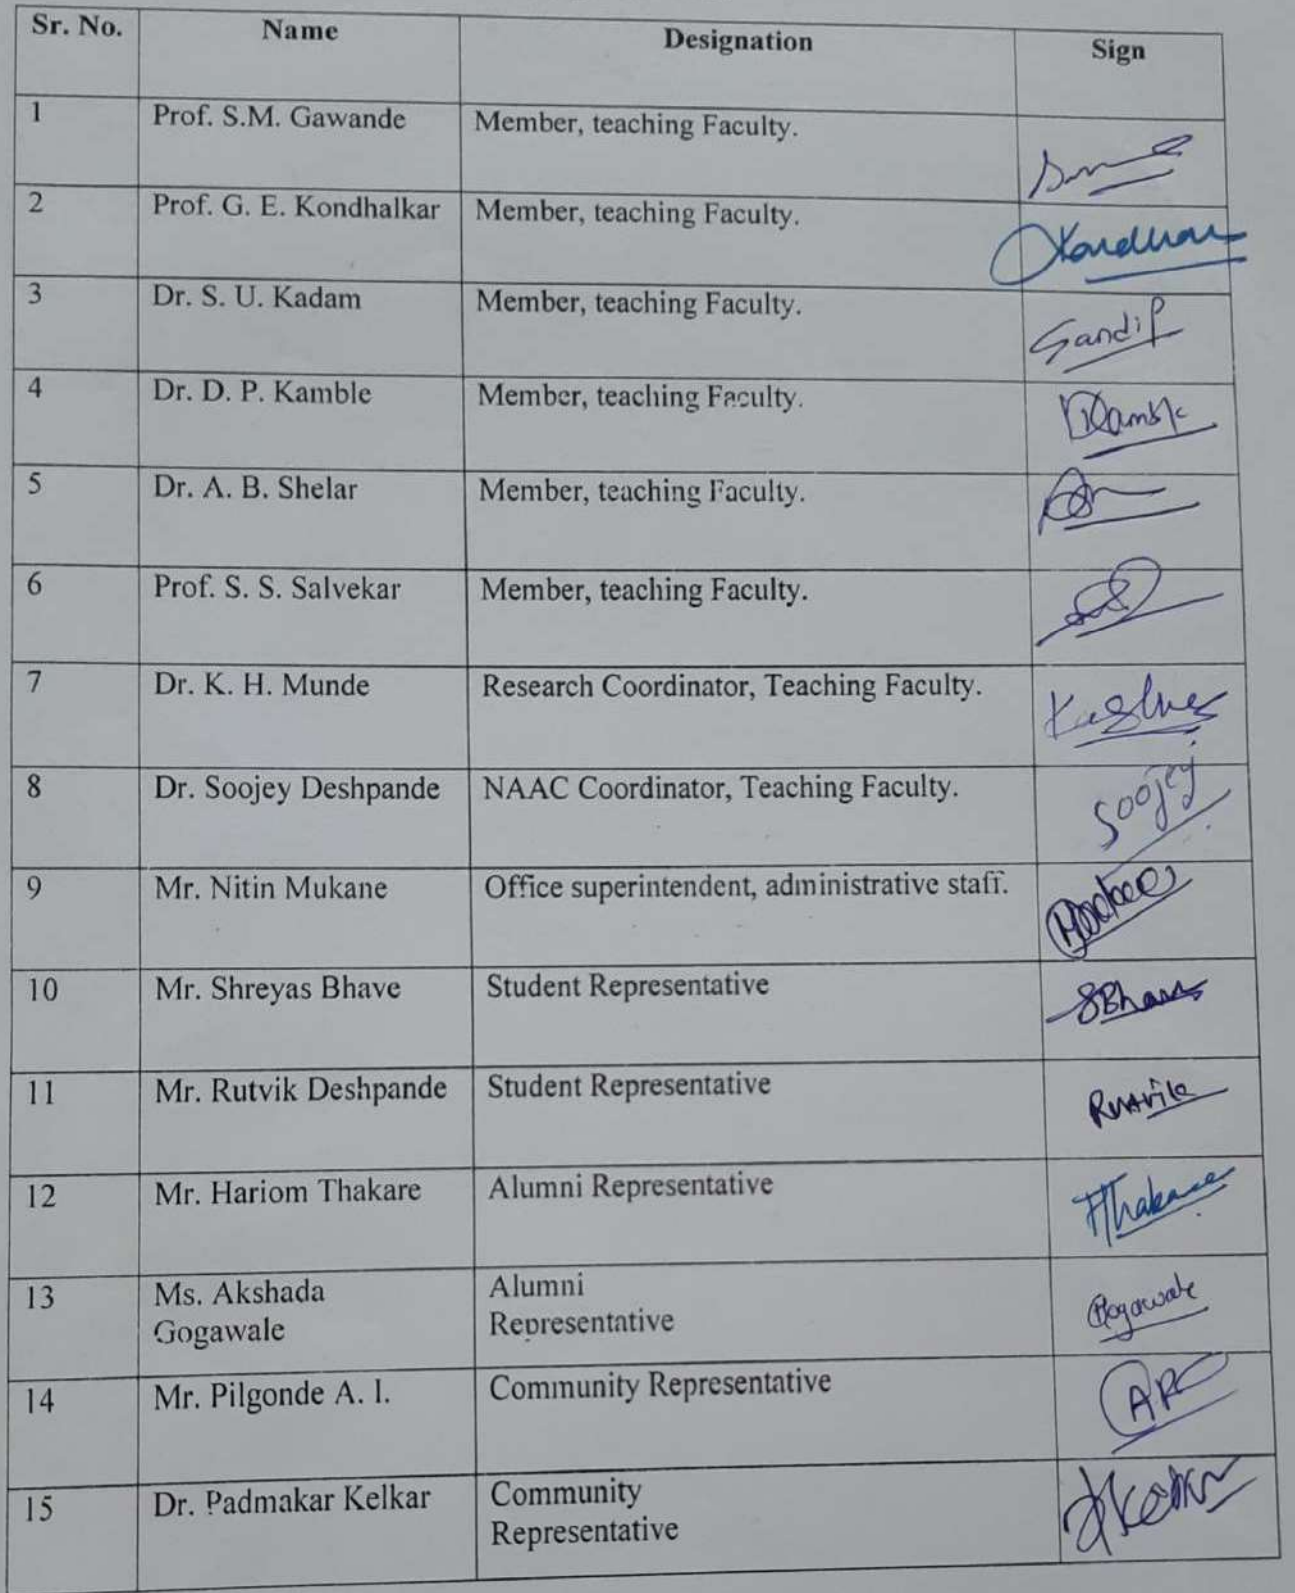 Sr. No. Name Designation Sign
1 Prof. S.M. Gawande Member, teaching Faculty.
2 Prof. G. E. Kondhalkar Member, teaching Faculty.
3 Dr. S. U. Kadam Member, teaching Faculty. Sandip
4 Dr. D. P. Kamble Member, teaching Faculty. DKamble
5 Dr. A. B. Shelar Member, teaching Faculty.
6 Prof. S. S. Salvekar Member, teaching Faculty.
7 Dr. K. H. Munde Research Coordinator, Teaching Faculty.
8 Dr. Soojey Deshpande NAAC Coordinator, Teaching Faculty. Soojey
9 Mr. Nitin Mukane Office superintendent, administrative staff.
10 Mr. Shreyas Bhave Student Representative SBhave
11 Mr. Rutvik Deshpande Student Representative Rutvik
12 Mr. Hariom Thakare Alumni Representative HThakare
13 Ms. Akshada Alumni
Gogawale Representative
14 Mr. Pilgonde A. I. Community Representative
15 Dr. Padmakar Kelkar Community
Representative